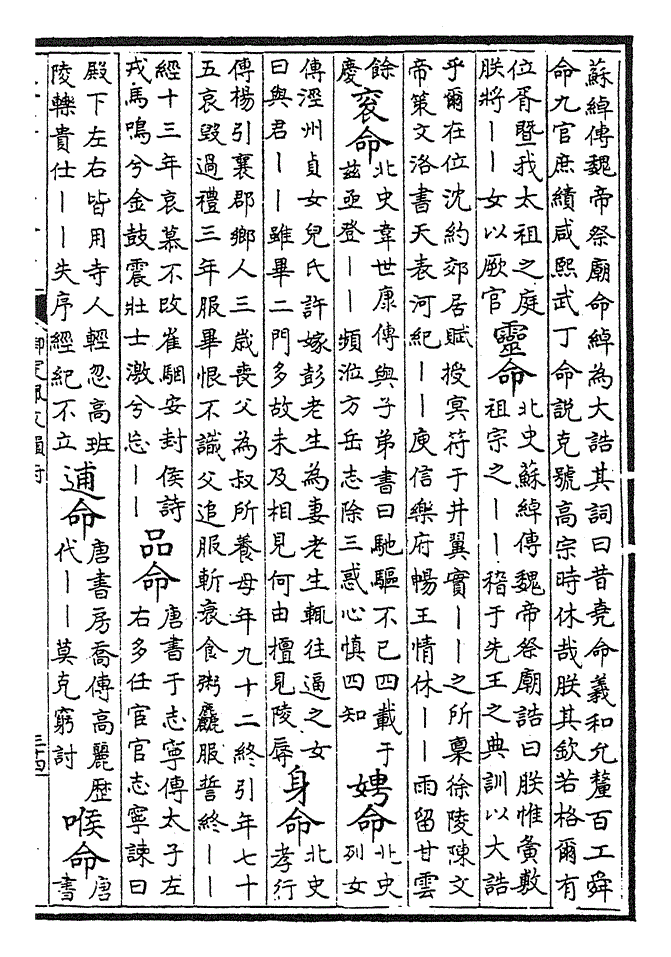 蘇綽傳魏帝祭廟命綽為大誥其詞曰昔堯命羲和允釐百工舜
命九官庶績咸熙武丁命說克號高宗時休哉朕其欽若格爾有
位胥暨我太祖之庭
朕將——女以厥官
靈命
北史蘇綽傳魏帝祭廟誥曰朕惟夤敷
祖宗之——稽于先王之典訓以大誥
乎爾在位沈約郊居賦授冥符于井翼實——之所稟徐陵陳文
帝策文洛書天表河紀——庾信樂府暢王情休——雨留甘雲
餘
慶
衮命
北史韋世康傳與子弟書曰馳驅不已四載于
茲亟登——頻涖方岳志除三惑心慎四知
娉命
北史
列女
傳涇州貞女兒氏許嫁彭老生為妻老生輒往逼之女
曰與君——雖畢二門多故未及相見何由擅見陵辱
身命
北史
孝行
傳楊引襄郡鄉人三歲喪父為叔所養母年九十二終引年七十
五哀毀過禮三年服畢恨不識父追服斬衰食粥麤服誓終——
經十三年哀慕不改崔駰安封侯詩
戎馬鳴兮金鼓震壯士激兮忘——
品命
唐書于志寧傳太子左
右多任宦官志寧諫曰
殿下左右皆用寺人輕忽高班
陵轢貴仕——失序經紀不立
逋命
唐書房喬傳高麗歷
代——莫克窮討
喉命
唐
書